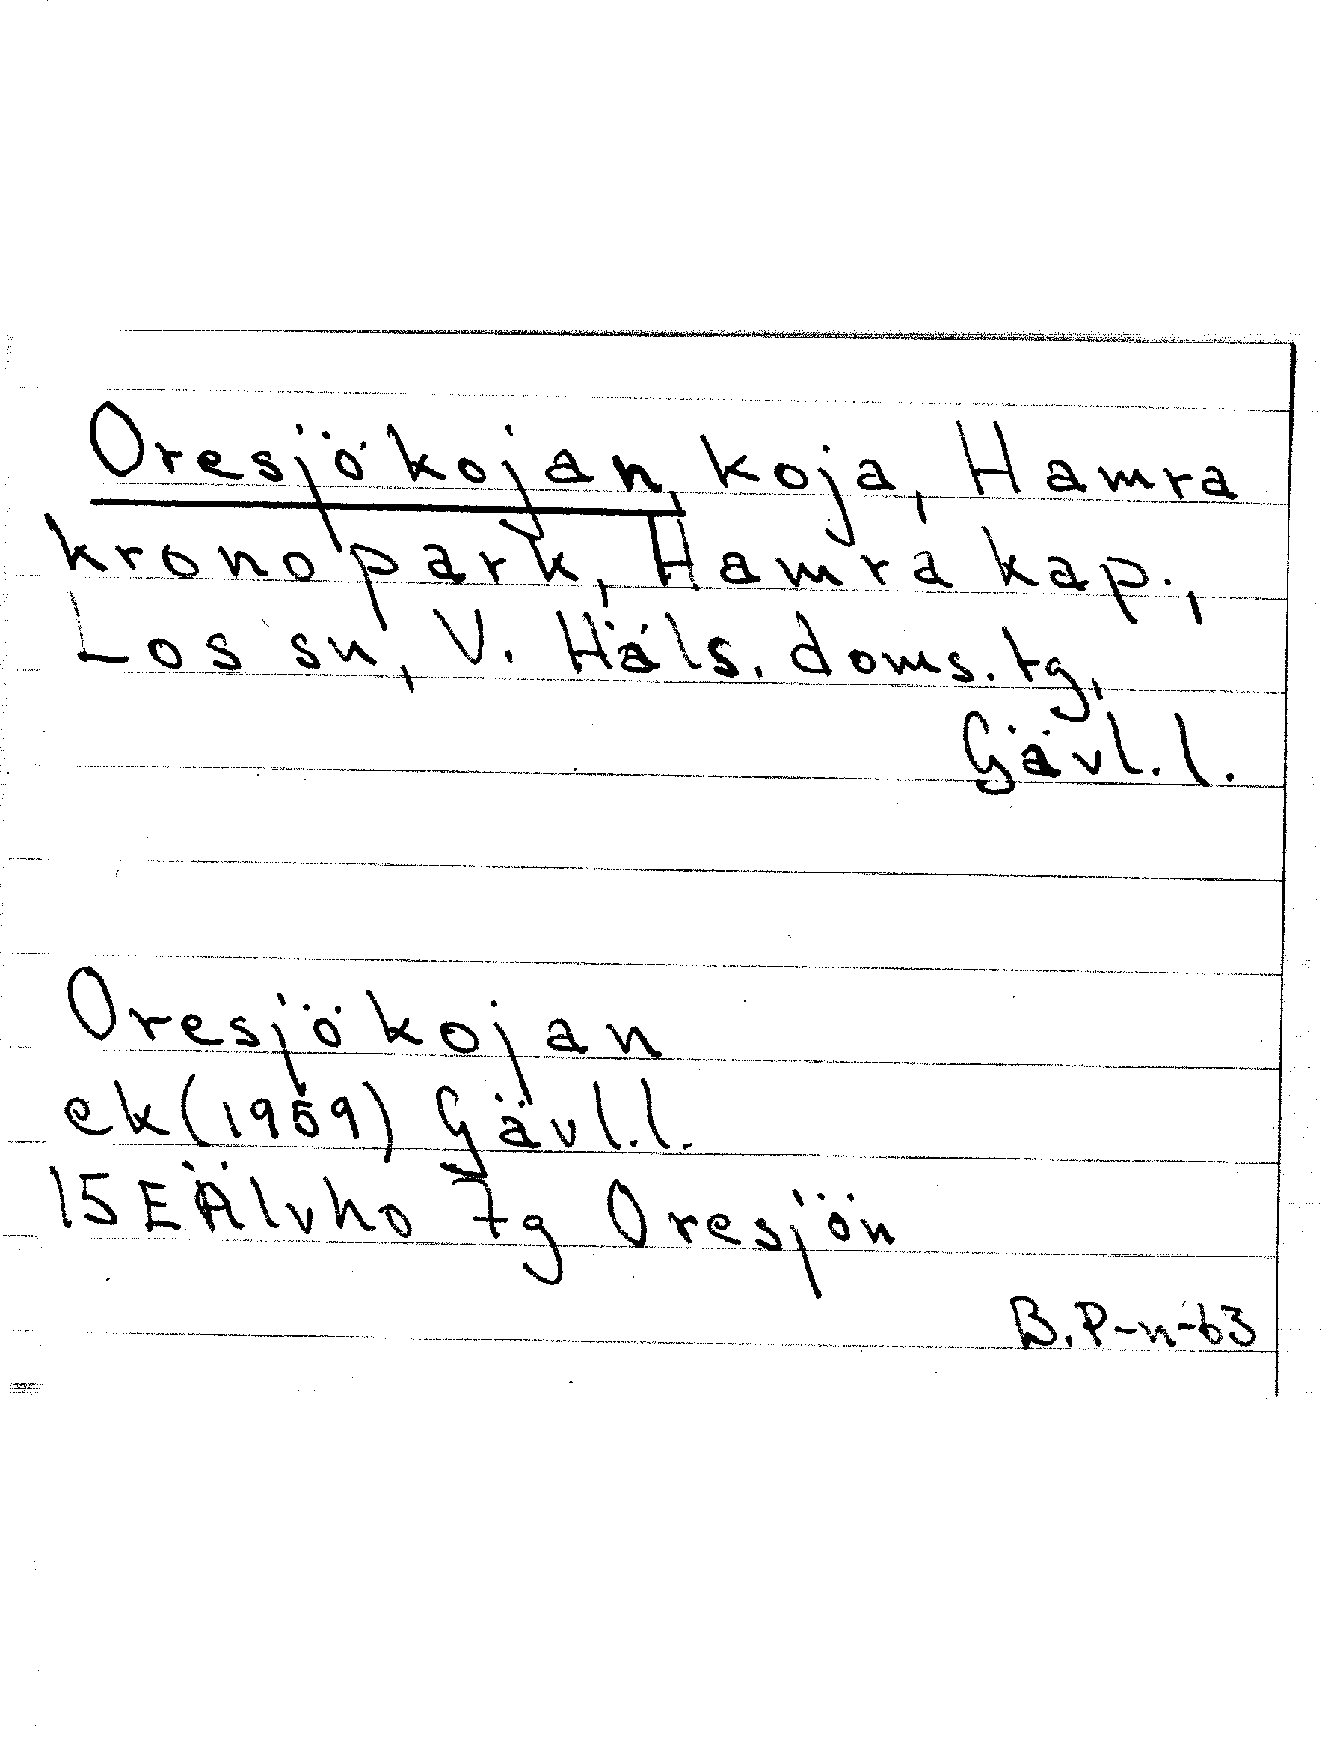 Oresjökojan, koja, Hamra
kronopark, Hamra kap.,
Los sn, V. Häls. doms. tg,
Gävl. l.
Oresjökojan
ek (1959) Gävl. l.
15E Älvho 7g Oresjön
B. P-n-63